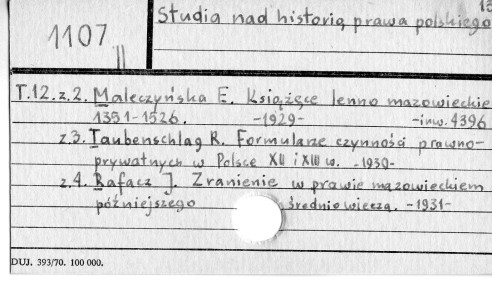 13
Studia nad historią prawa polskiego
1107
II
T.12. z.2. Maleczyńska E. Książęce lenno mazowieckie
1351-1526. -1929- -inw. 4396
z.3. Taubenschlag R. Formularze czynności prawno-
prywatnych w Polsce XII i XIII w. -1930-
z.4. Rafacz J. Zranienie w prawie mazowieckiem
późniejszego średniowiecza. -1931-
DUJ. 393/70. 100 000.